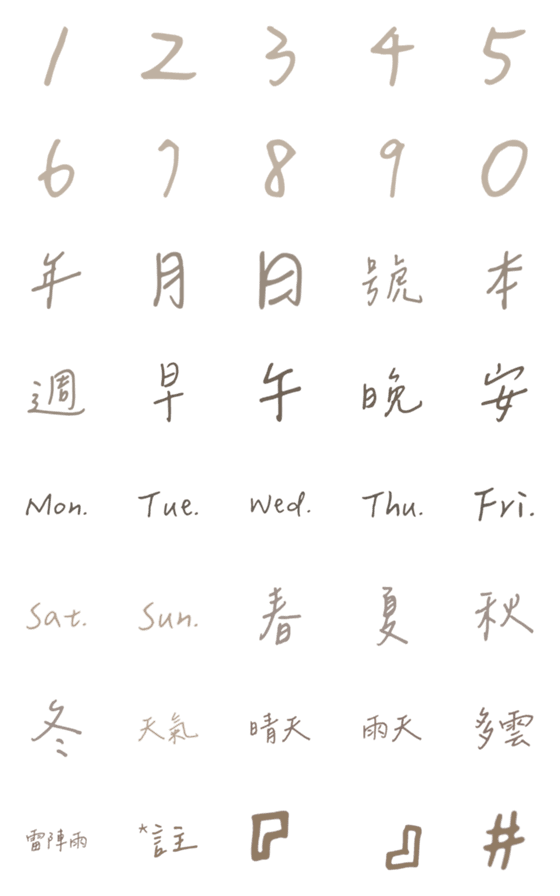 1 2 3 4 5
6 7 8 9 0
年 月 日 號 本
週 早 午 晚 安
Mon. Tue. Wed. Thu. Fri.
Sat. Sun. 春 夏 秋
冬 天氣 晴天 雨天 多雲
雷陣雨 *註 『 』 #